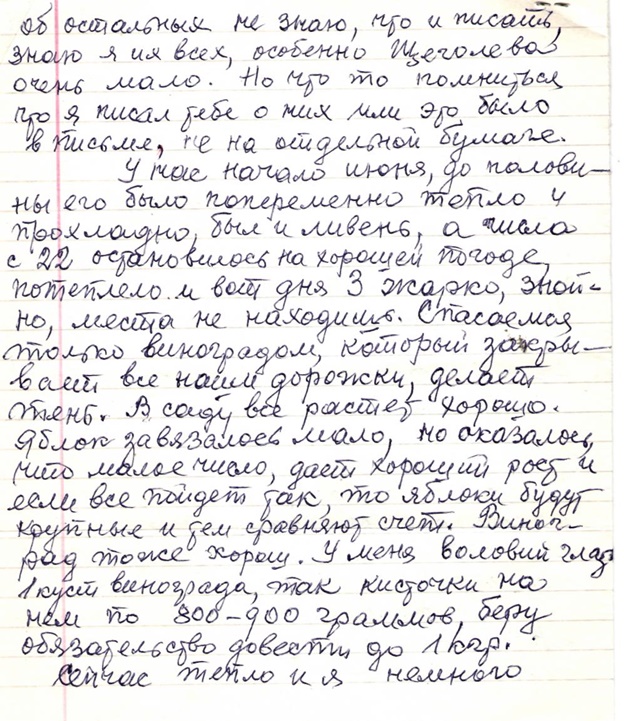 об остальных не знаю, что и писать,
знаю я их всех, особенно Щеголева
очень мало. Но что то помниться
что я писал тебе о них или это было
в письме, не на отдельной бумаге.
У нас начало июня, до полови-
ны его было попеременно тепло и
прохладно, был и ливень, а числа
с 22 остановилось на хорошей погоде,
потеплело и вот дня 3 жарко, зной-
но, места не находишь. Спасаемся
только виноградом, который закры-
вает все наши дорожки, делает
тень. В саду все растет хорошо.
Яблок завязалось мало, но оказалось,
что малое число, дает хороший рост и
если все пойдет так, то яблоки будут
крупные и тем сравняют счет. Виног-
рад тоже хорош. У меня воловий глаз
1 куст винограда, так кисточки на
нем по 800-900 граммов, беру
обязательство довести до 1 кгр.
Сейчас тепло и я немного